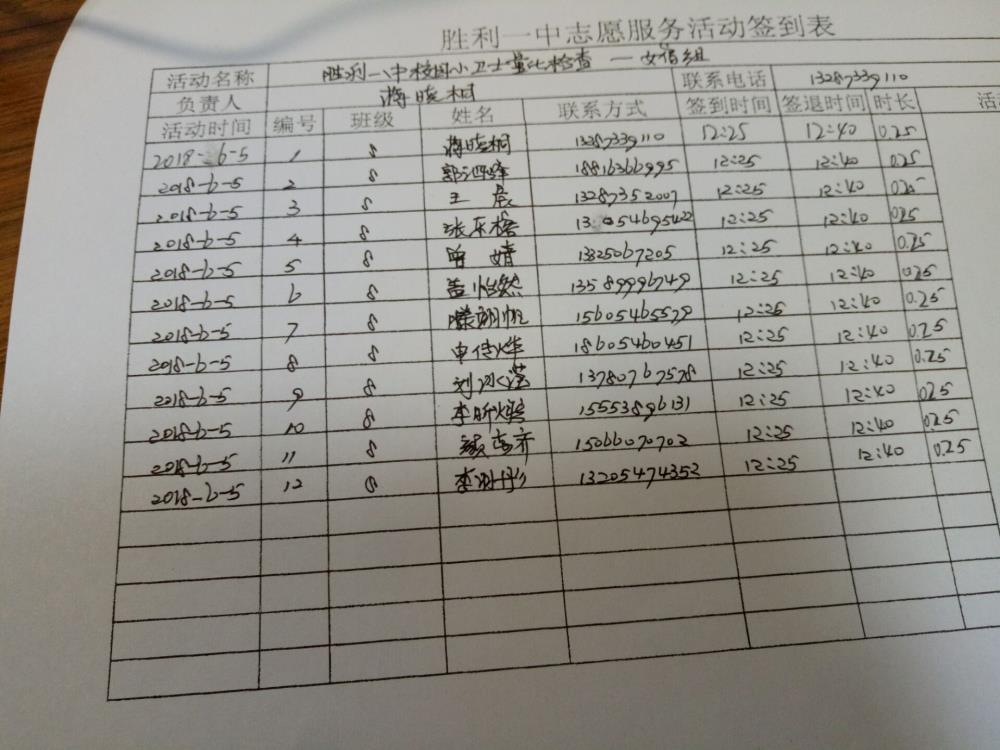 胜利一中志愿服务活动签到表
活动名称 胜利一中校园小卫士量化检查 — 女宿组 联系电话 13287339110
负责人 蒋晓桐
活动时间 编号 班级 姓名 联系方式 签到时间 签退时间 时长 活
2018-6-5 1 8 蒋晓桐 13287339110 12:25 12:40 0.25
2018-6-5 2 8 18816366995 12:25 12:40 0.25
2018-6-5 3 8 王辰 13287352007 12:25 12:40 0.25
2018-6-5 4 8 12:25 12:40 0.25
2018-6-5 5 8 曾婧 1325067205 12:25 12:40 0.25
2018-6-5 6 8 盖怡然 13589996749 12:25 12:40 0.25
2018-6-5 7 8 15605465579 12:25 12:40 0.25
2018-6-5 8 8 申佳烨 18605460451 12:25 12:40 0.25
2018-6-5 9 8 刘冰滢 13780767578 12:25 12:40 0.25
2018-6-5 10 8 15553896131 12:25 12:40 0.25
2018-6-5 11 8 15066070702 12:25 12:40 0.25
2018-6-5 12 8 13205474352 12:25 12:40 0.25